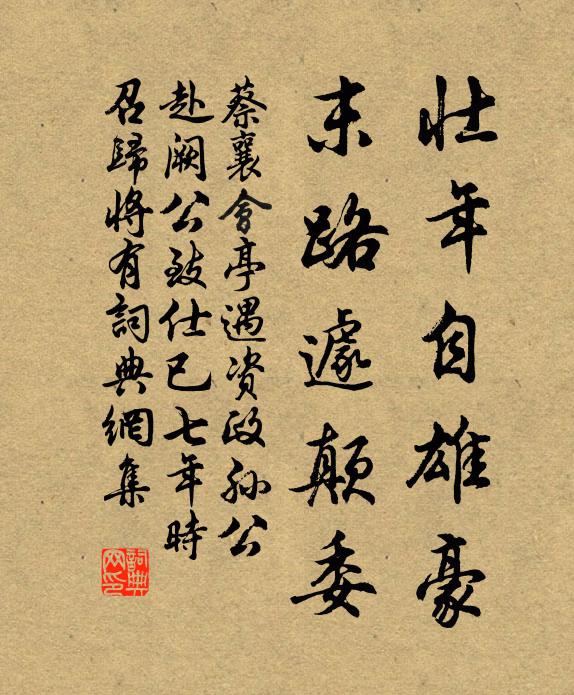 壮年自雄豪
末路遽颠委
蔡襄会亭遇资政孙公
赴阙公致仕已七年时
召歸将有詞典網集
詞典网印